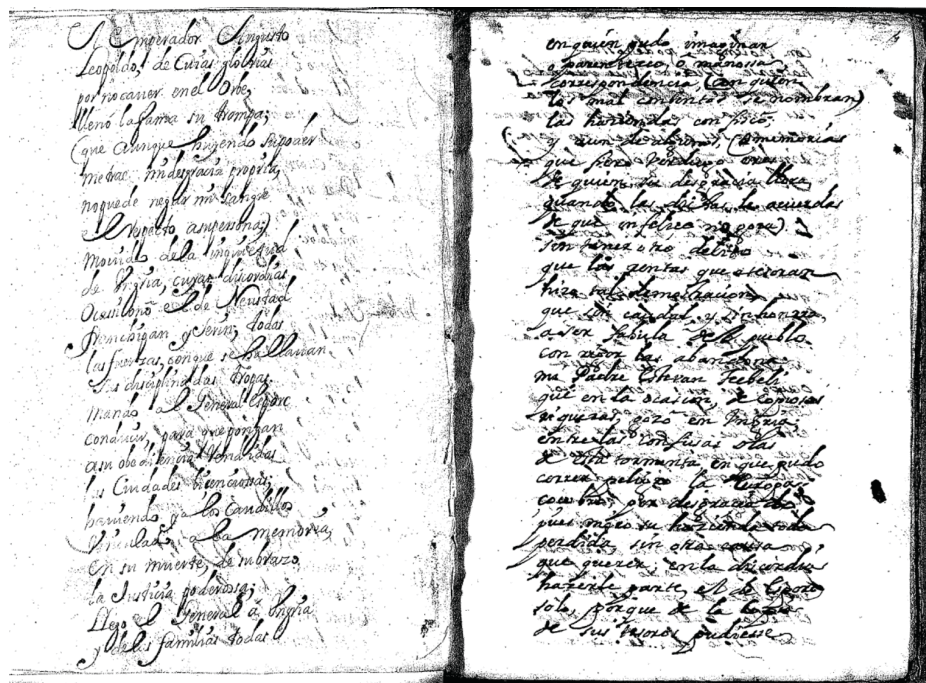 El Emperador Augusto
Leopoldo, de Cuias glorias
por no cauer en el Orbe,
llenó la fama su trompa;
(que aunque huiendo supoder
me trae mi desgracia propria,
no puede negar mi sangre
el respecto a supersona)
mouido de la inquietud
de Vngria, cuias discordias
Ocasionó el de Neustad
Franchipan y Serin, todas
las fuerzas, con que se hallauan
sus disciplinadas tropas
mandó al General
conducir, para que pongan
a su obediencia rendidas
las Ciudades licenciosas,
hauiendo ya los Caudillos
vinculado a la memoria,
en su muerte, de su brazo
la Justicia poderosa;
Llegó el General á Vngria
y de las familias todas
en quien pudo imaginar
o parentezco, ó mañossa
correspondencia, (en quien
los mal contentos se nombran)
las haziendas confiscó,
y aun de algunos, (á memorias
que fiero Verdugo eres
de quien su desgracia llora
quando las dichas le acuerdas
de que infelice no goza)
sin tener otro delito
que las rentas que atesoran
hizo tal demostracion,
que sin caudal y sin honrra
a ser fabula del pueblo
con rigor las abandona
mi Padre Esteuan Tekeli
que en la ocasion, de copiosas
riquezas, gozó en Vngria,
entre las confusas olas
de esta tormenta, en que pudo
correr peligro la Europa,
por desgracia
pues miró su hazienda toda
perdida, sin otra causa
que querer, en la discordia
hazerle parte, el de
solo, porque de la
de sus tesoros pudiesse